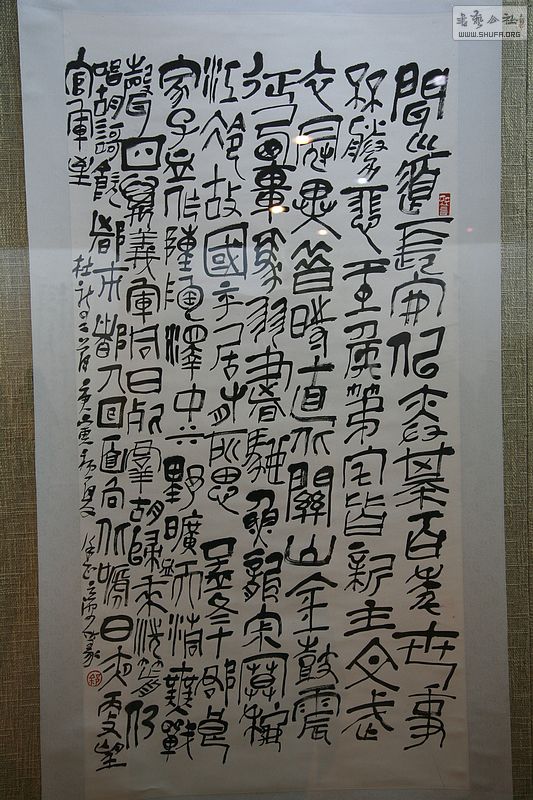 聞道長安似弈棋百年世事
不勝悲王侯第宅皆新主文武
衣冠異昔時直北關山金鼓震
征西車馬羽書馳魚龍寂寞秋
江冷故國平居有所思孟冬十郡良
家子血作陳陶澤中水野曠天清無戰
聲四萬義軍同日死群胡歸來血洗箭仍
唱胡歌飲都市都人回面向北啼日夜更望
官軍至
杜詩二首
书艺公社
WWW.SHUFA.ORG